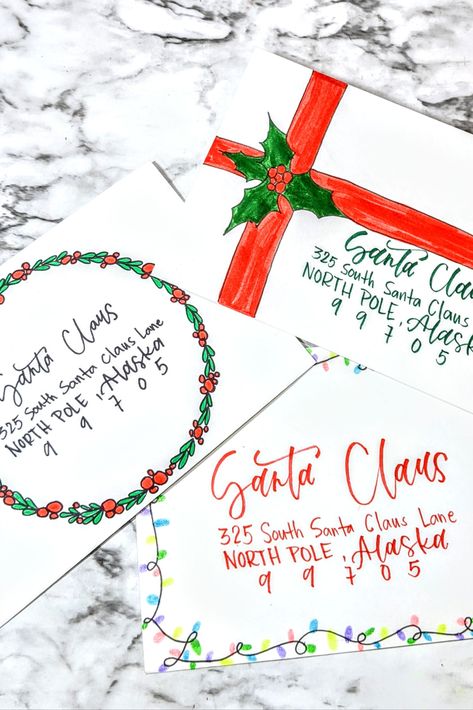 Santa Claus
325 South Santa Claus
NORTH POLE, Alaska
9 9 7 0 5
Santa Claus
325 South Santa Claus Lane
NORTH POLE, Alaska
9 9 7 0 5
Santa Claus
325 South Santa Claus Lane
NORTH POLE, Alaska
9 9 7 0 5